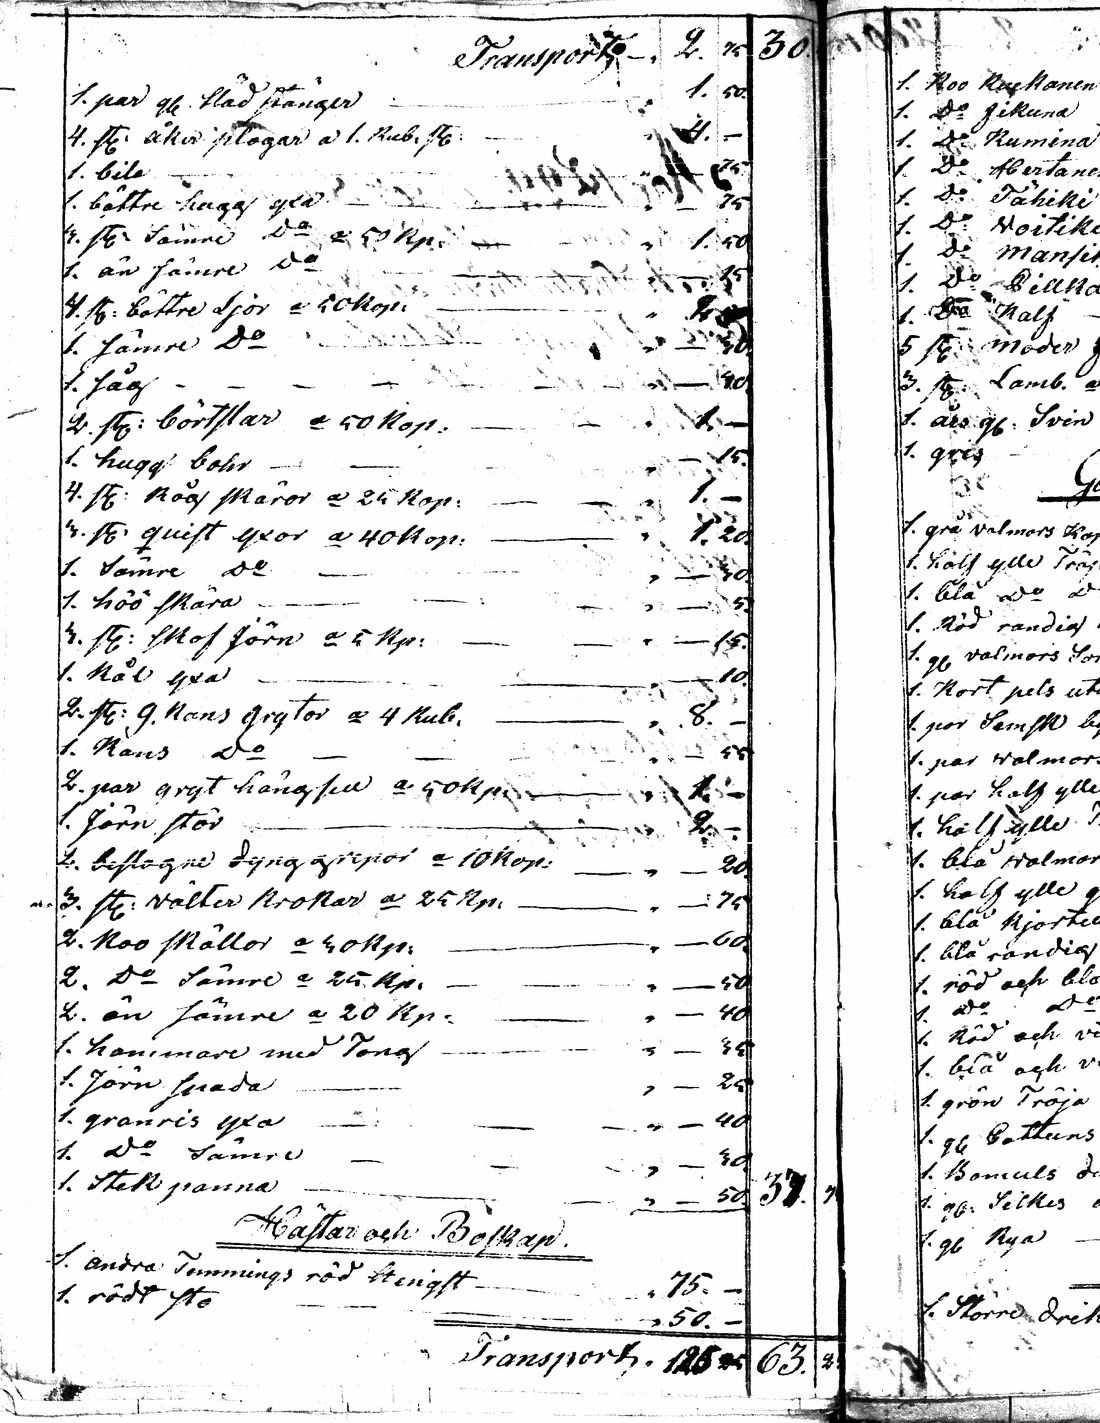 Transport 2. 75 30.
1. par gl. släd stänger 1. 50.
4. st: åker plogar a 1. Rub. st: 4. –
1 bila – 75
1. bättre hugg yxa – 75
3. st: sämre Do a 50 Kp: 1. 50
1. än sämre Do – 15
4. st: bättre Ljor a 50 Kop: 2.
1. sämre Do – 30
1. såg – 40.
2. st: börstlar a 50 Kop. 1. –
1. hugg bohr – 15.
4. st: Råg skäror a 25 Kop: 1. –
3. st: quist yxor a 40 Kop: 1. 20.
1. sämre Do – 30.
1. höö skära – 5
3. st: skof Jörn a 5 Kp: – 15.
1. Kål yxa – 10.
2. st: 9. Kans grytor a 4 Rub. 8. –
1. Kans Do – 55
2. par gryt hängslel a 50 Kp. 1. –
1. Jörn stör 2. –
2. beslagne dynggrepor a 10 Kop: – 20.
3. st: välter krokar a 25 Kp. – 75
2. Koo skällor a 30 Kp. – 60.
2. Do sämre a 25 Kp. – 50
2. än sämre a 20 Kp. – 40
1. hammare med Tong – 35
1. Jörn spada – 25
1. granris yxa – 40
1. Do sämre – 30.
1. Stek panna – 50 37.
Hästar och Boskap.
1. andra Temmings röd Hengst 75. –
1. rödt sto 50. –
Transport. 125 63.
1. Koo Ruskanen
1. Do Jikuna
1. Do Rumina
1. Do
1. Do Tähiki
1. Do Voitike
1. Do Mansik
1. Do Pillka
1. Do Kalf
5 st: moder
3. st: Lamb. a
1. års gl. Svin
1. gris
1. grå valmars Kap
1. half ylle Tröj
1. blå Do D
1. Röd randig
1. gl valmars
1. Kort pels ut
1. par Semsk by
1. par valmars
1. par half ylle
1. half ylle T
1. blå valmar
1. half ylle g
1. blå Kjortel
1. blå randig
1. röd och blå
1. Do Do
1. Röd och vi
1. blå och v
1. grön Tröja
1. gl Cattuns
1. Bomuls d
1. gl. Silkes
1. gl Rya
1. Större drik